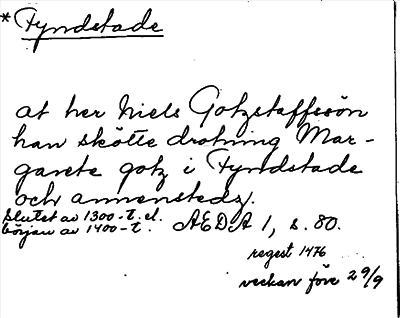 * Fyndstade
at her Niels Gotzstaffssön
han skötte drotning Mar-
garete gotz i Fyndstade
och annenstedz.
Slutet av 1300-t. el.
början av 1400-t. AEDA 1, s. 80.
regest 1476
veckan före 29/9